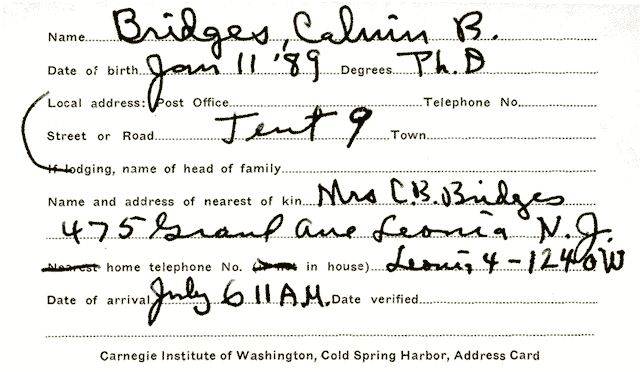 Name Bridges, Calvin B.
Date of birth Jan 11 '89 Degrees Ph.D
Local address: Post Office Telephone No.
Street or Road Tent 9 Town
If lodging, name of head of family
Name and address of nearest of kin Mrs C.B. Bridges
475 Grand Ave Leonia N.J.
Nearest home telephone No. (in house) Leonia 4-1240W
Date of arrival July 6 11 A.M. Date verified
Carnegie Institute of Washington, Cold Spring Harbor, Address Card